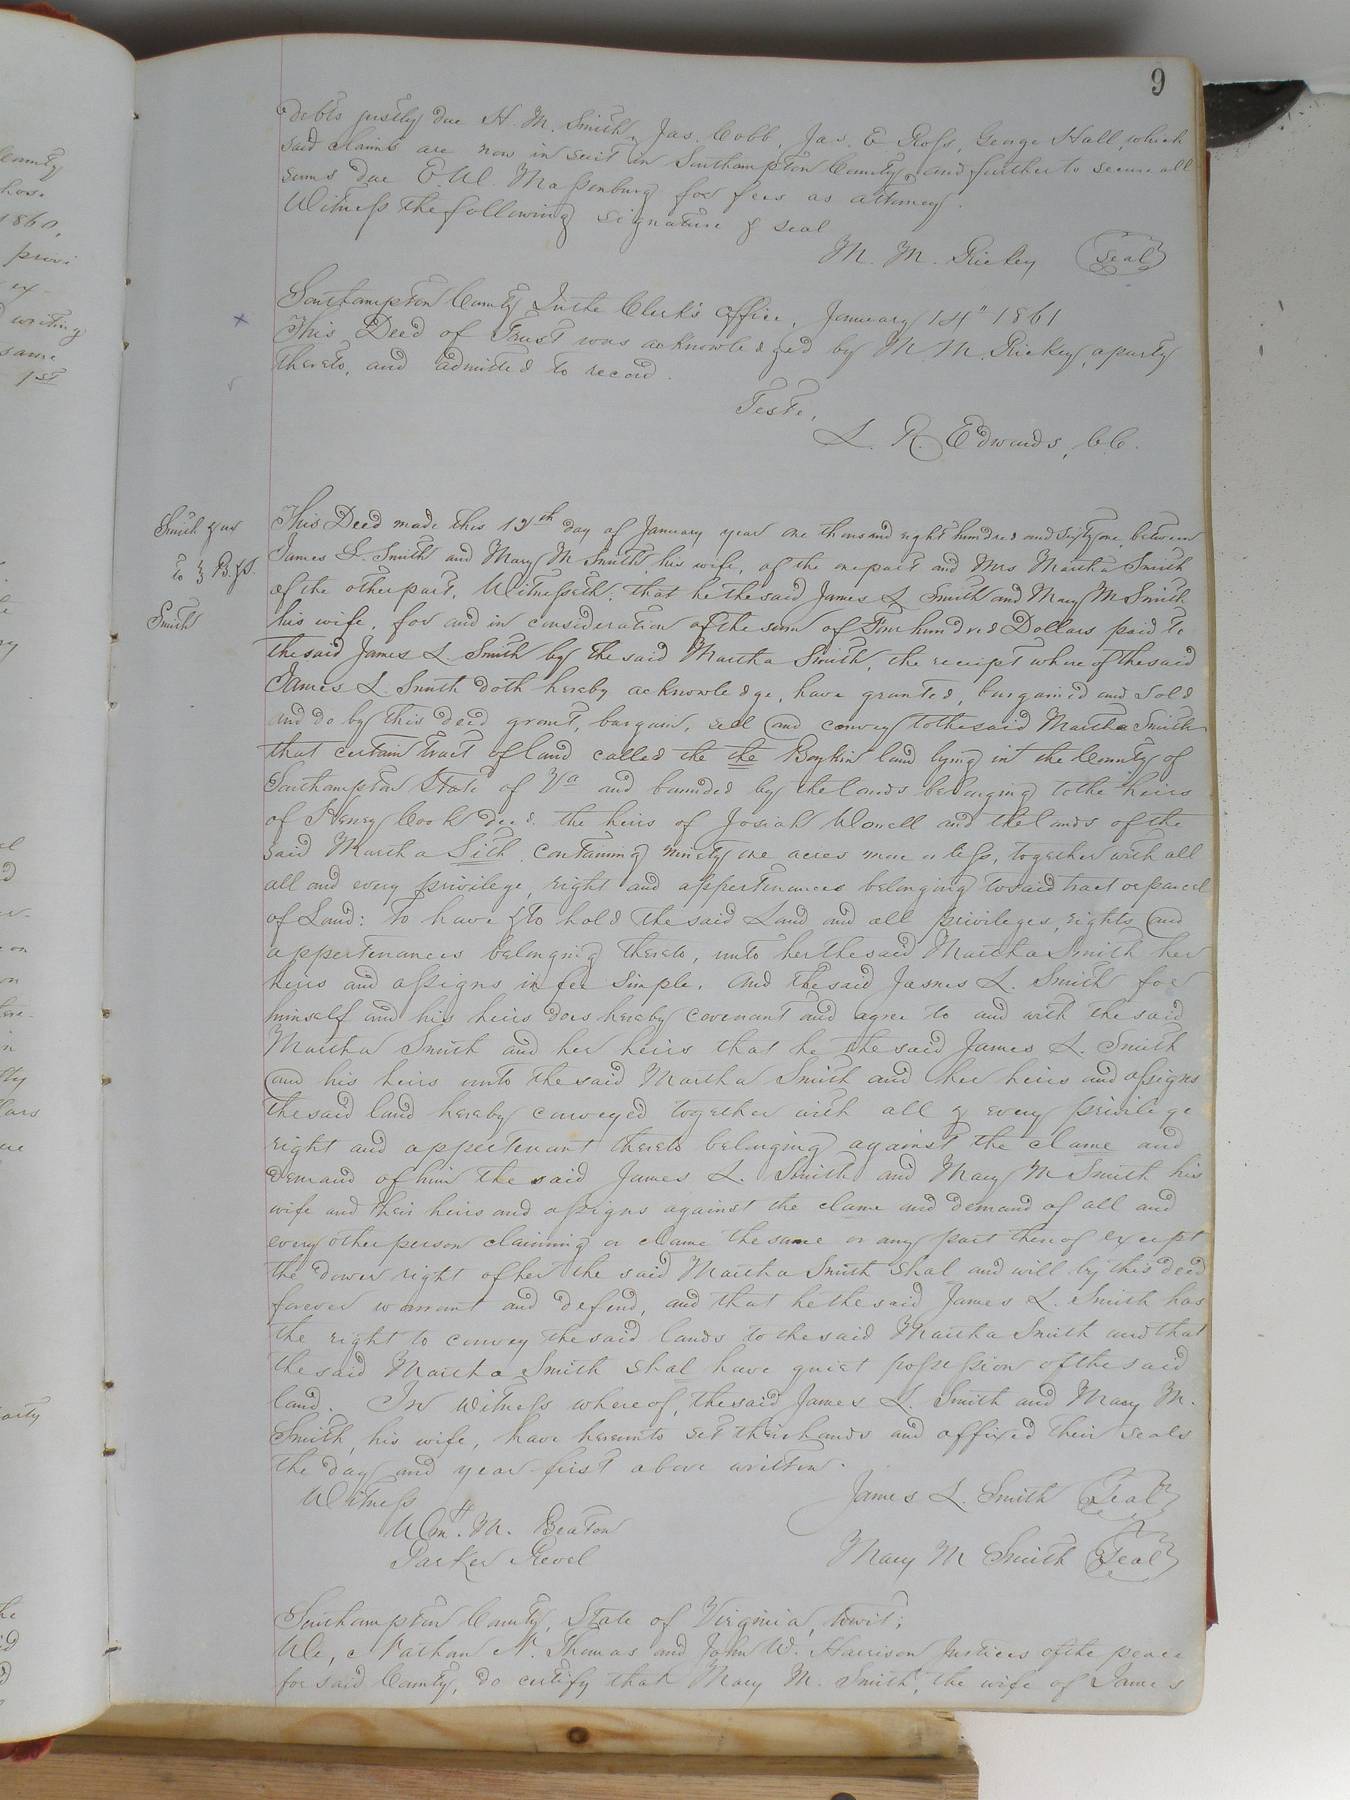 9
debts justly due H. M. Smith, Jas. Cobb, Jas. E Ross, George Hall which
said claims are now in suit in Southampton County, and further to secure all
sums due E. W. Massenburg for fees as attorney.
Witness the following signature & seal
M. M. Rickey Seal
Southampton County In the Clerk's Office, January 14" 1861
This Deed of Trust was acknowledged by M M. Rickey, a party
thereto, and admitted to record.
Teste,
L. R. Edwards, C.C.
Smith & ux
to } B. & S.
Smith
This Deed made this 12th day of January year one thousand eight hundred and sixty one, between
James L. Smith and Mary M Smith, his wife, of the one part and Mrs Martha Smith
of the other part, Witnesseth, that he the said James L Smith and Mary M Smith
his wife, for and in consideration of the sum of Four hundred Dollars paid to
the said James L Smith by the said Martha Smith, the receipt where of the said
James L. Smith doth hereby acknowledge, have granted, bargained and sold
and do by this deed grant, bargain, sell and convey to the said Martha Smith
that certain tract of land called the the Boykin land lying in the County of
Southampton State of Va and bounded by the lands belonging to the heirs
of Henry Cook decd. the heirs of Josiah and the lands of the
said Martha containing ninety one acres more or less, together with all
all and every privilege, right and appertenances belonging to said tract or parcel
of Land: To have & to hold the said Land and all privileges, rights and
appertenances belonging thereto, unto her the said Martha Smith her
heirs and assigns in fee simple. And the said James L. Smith for
himself and his heirs does hereby covenant and agree to and with the said
Martha Smith and her heirs that he the said James L. Smith
and his heirs unto the said Martha Smith and her heirs and assigns
the said land hereby conveyed together with all & every privilege
right and appertenant thereto belonging against the clame and
demand of him the said James L. Smith and Mary M Smith his
wife and their heirs and assigns against the clame and demand of all and
every other person claiming or clame the same or any part thereof except
the dower right of her the said Martha Smith shal and will by this deed
forever warrant and defend, and that he the said James L. Smith has
the right to convey the said lands to the said Martha Smith and that
the said Martha Smith shal have quiet possession of the said
land. In witness where of, the said James L. Smith and Mary M.
Smith, his wife, have hereunto set their hands and affixed their seals
the day and year first above written.
Witness
James L. Smith Seal
Wm. H. M. Beaton
Parker Revel
Mary M Smith Seal
Southampton County, State of Virginia, towit;
We, Nathan N. Thomas and John W. Harrison Justices of the peace
for said County, do certify that Mary M. Smith, the wife of James